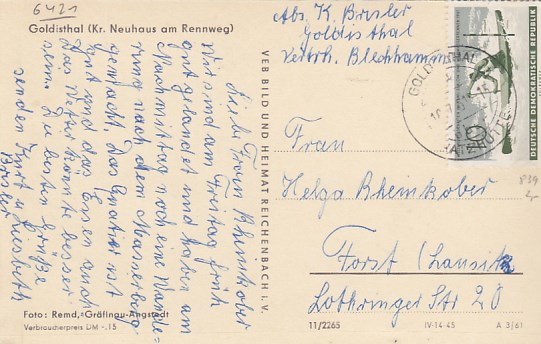 6421
Goldisthal (Kr. Neuhaus am Rennweg)
Liebe Frau Rheinkober
Wir sind am Freitag früh
gut gelandet und haben am
Nachmittag noch eine Wande=
rung nach dem Masserberg
gemacht. Das Quatier ist
gut und das Essen auch
Das Wetter könnte besser
sein. Die besten Grüße
senden Kurt u. Liesbeth
Bresler
Foto: Remd, Gräfinau-Angstedt
Verbraucherpreis DM -.15
VEB BILD UND HEIMAT REICHENBACH I. V.
Abs. K. Bresler
Goldisthal
Vertrh. Blechhammer
GOLDISTHAL
DEUTSCHE DEMOKRATISCHE REPUBLIK
Frau
Helga Rheinkober
Forst (Lausitz
Lothringer Str 20
11/2265
IV-14-45
A 3/61